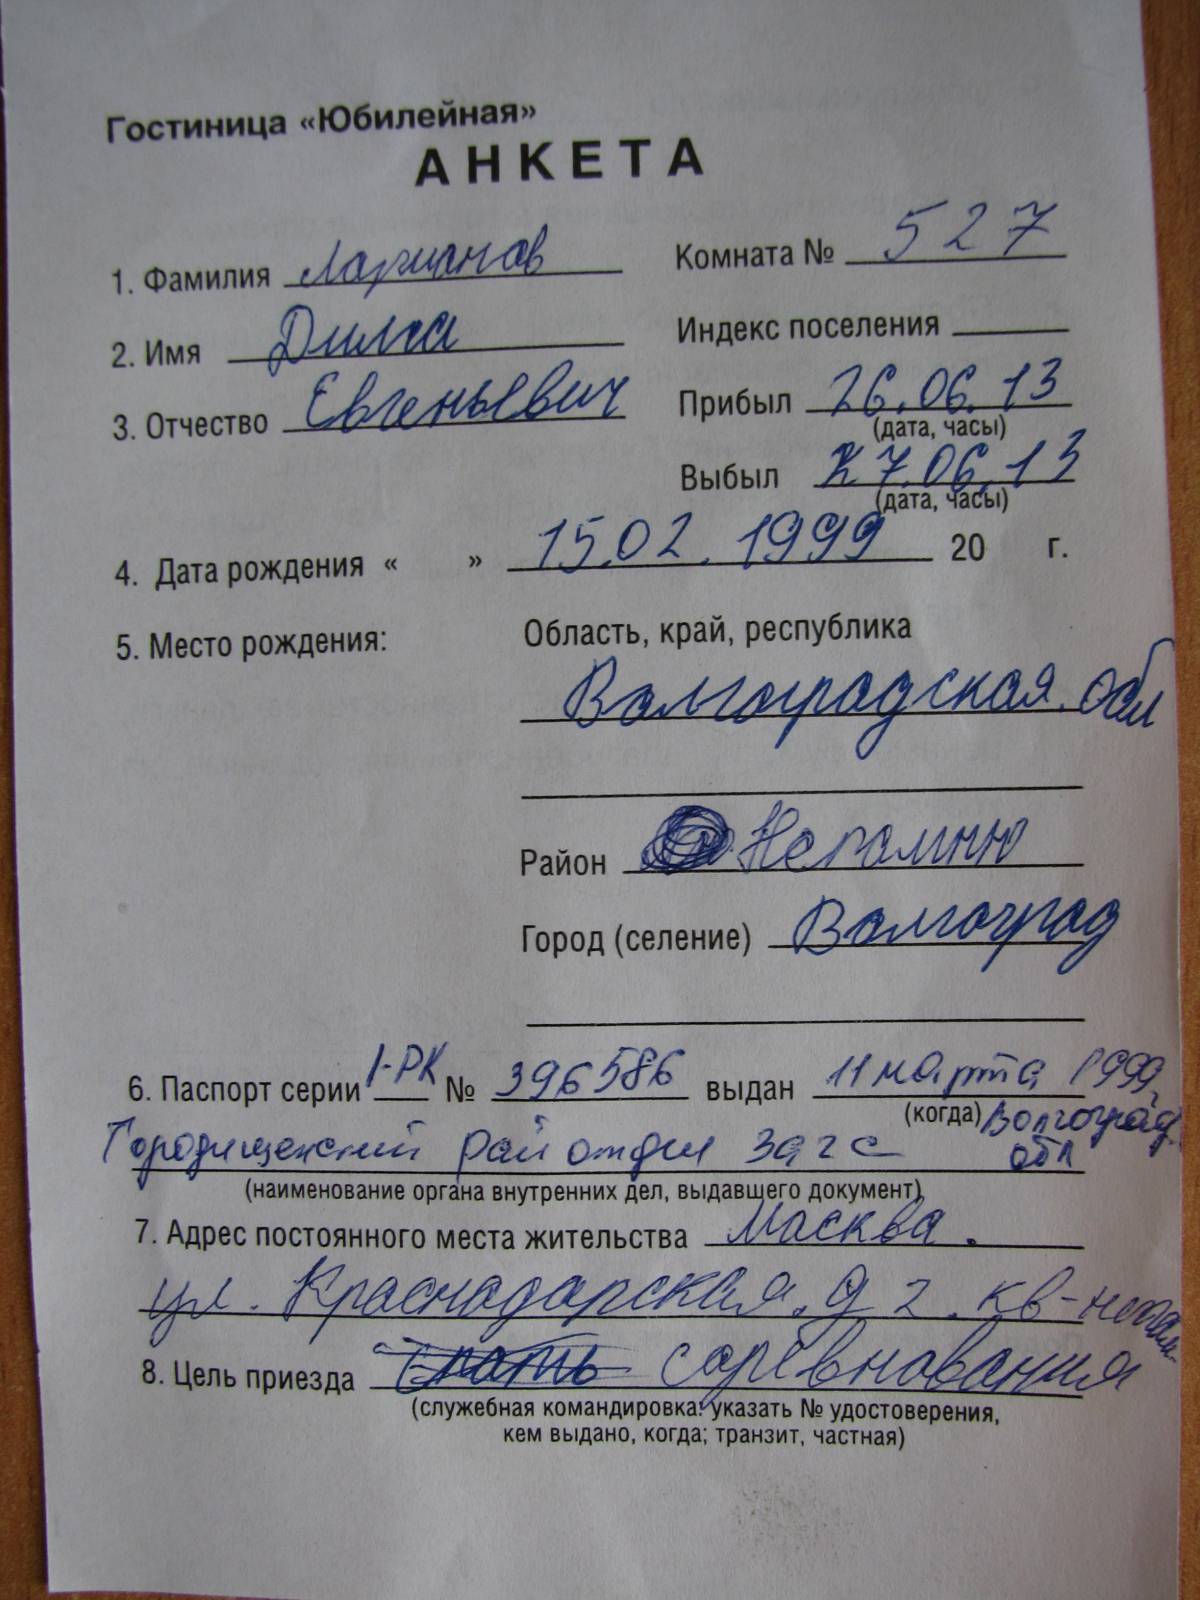 Гостиница «Юбилейная»
АНКЕТА
1. Фамилия Ларианов Комната № 527
2. Имя Дима Индекс поселения
3. Отчество Евгеньевич Прибыл 26.06.13
(дата, часы)
Выбыл 27.06.13
(дата, часы)
4. Дата рождения « » 15.02.1999 20 г.
5. Место рождения: Область, край, республика
Валгоградская. обл
Район Непамню
Город (селение) Валгоград
6. Паспорт серии I-РК № 396586 выдан 11 марта 1999
(когда) Волгоград.
Городищенский рай отдел загс обл
(наименование органа внутренних дел, выдавшего документ)
7. Адрес постоянного места жительства Масква.
ул. Краснадарская. д 2. кв-непам-
8. Цель приезда соревнавания
(служебная командировка: указать № удостоверения,
кем выдано, когда; транзит, частная)